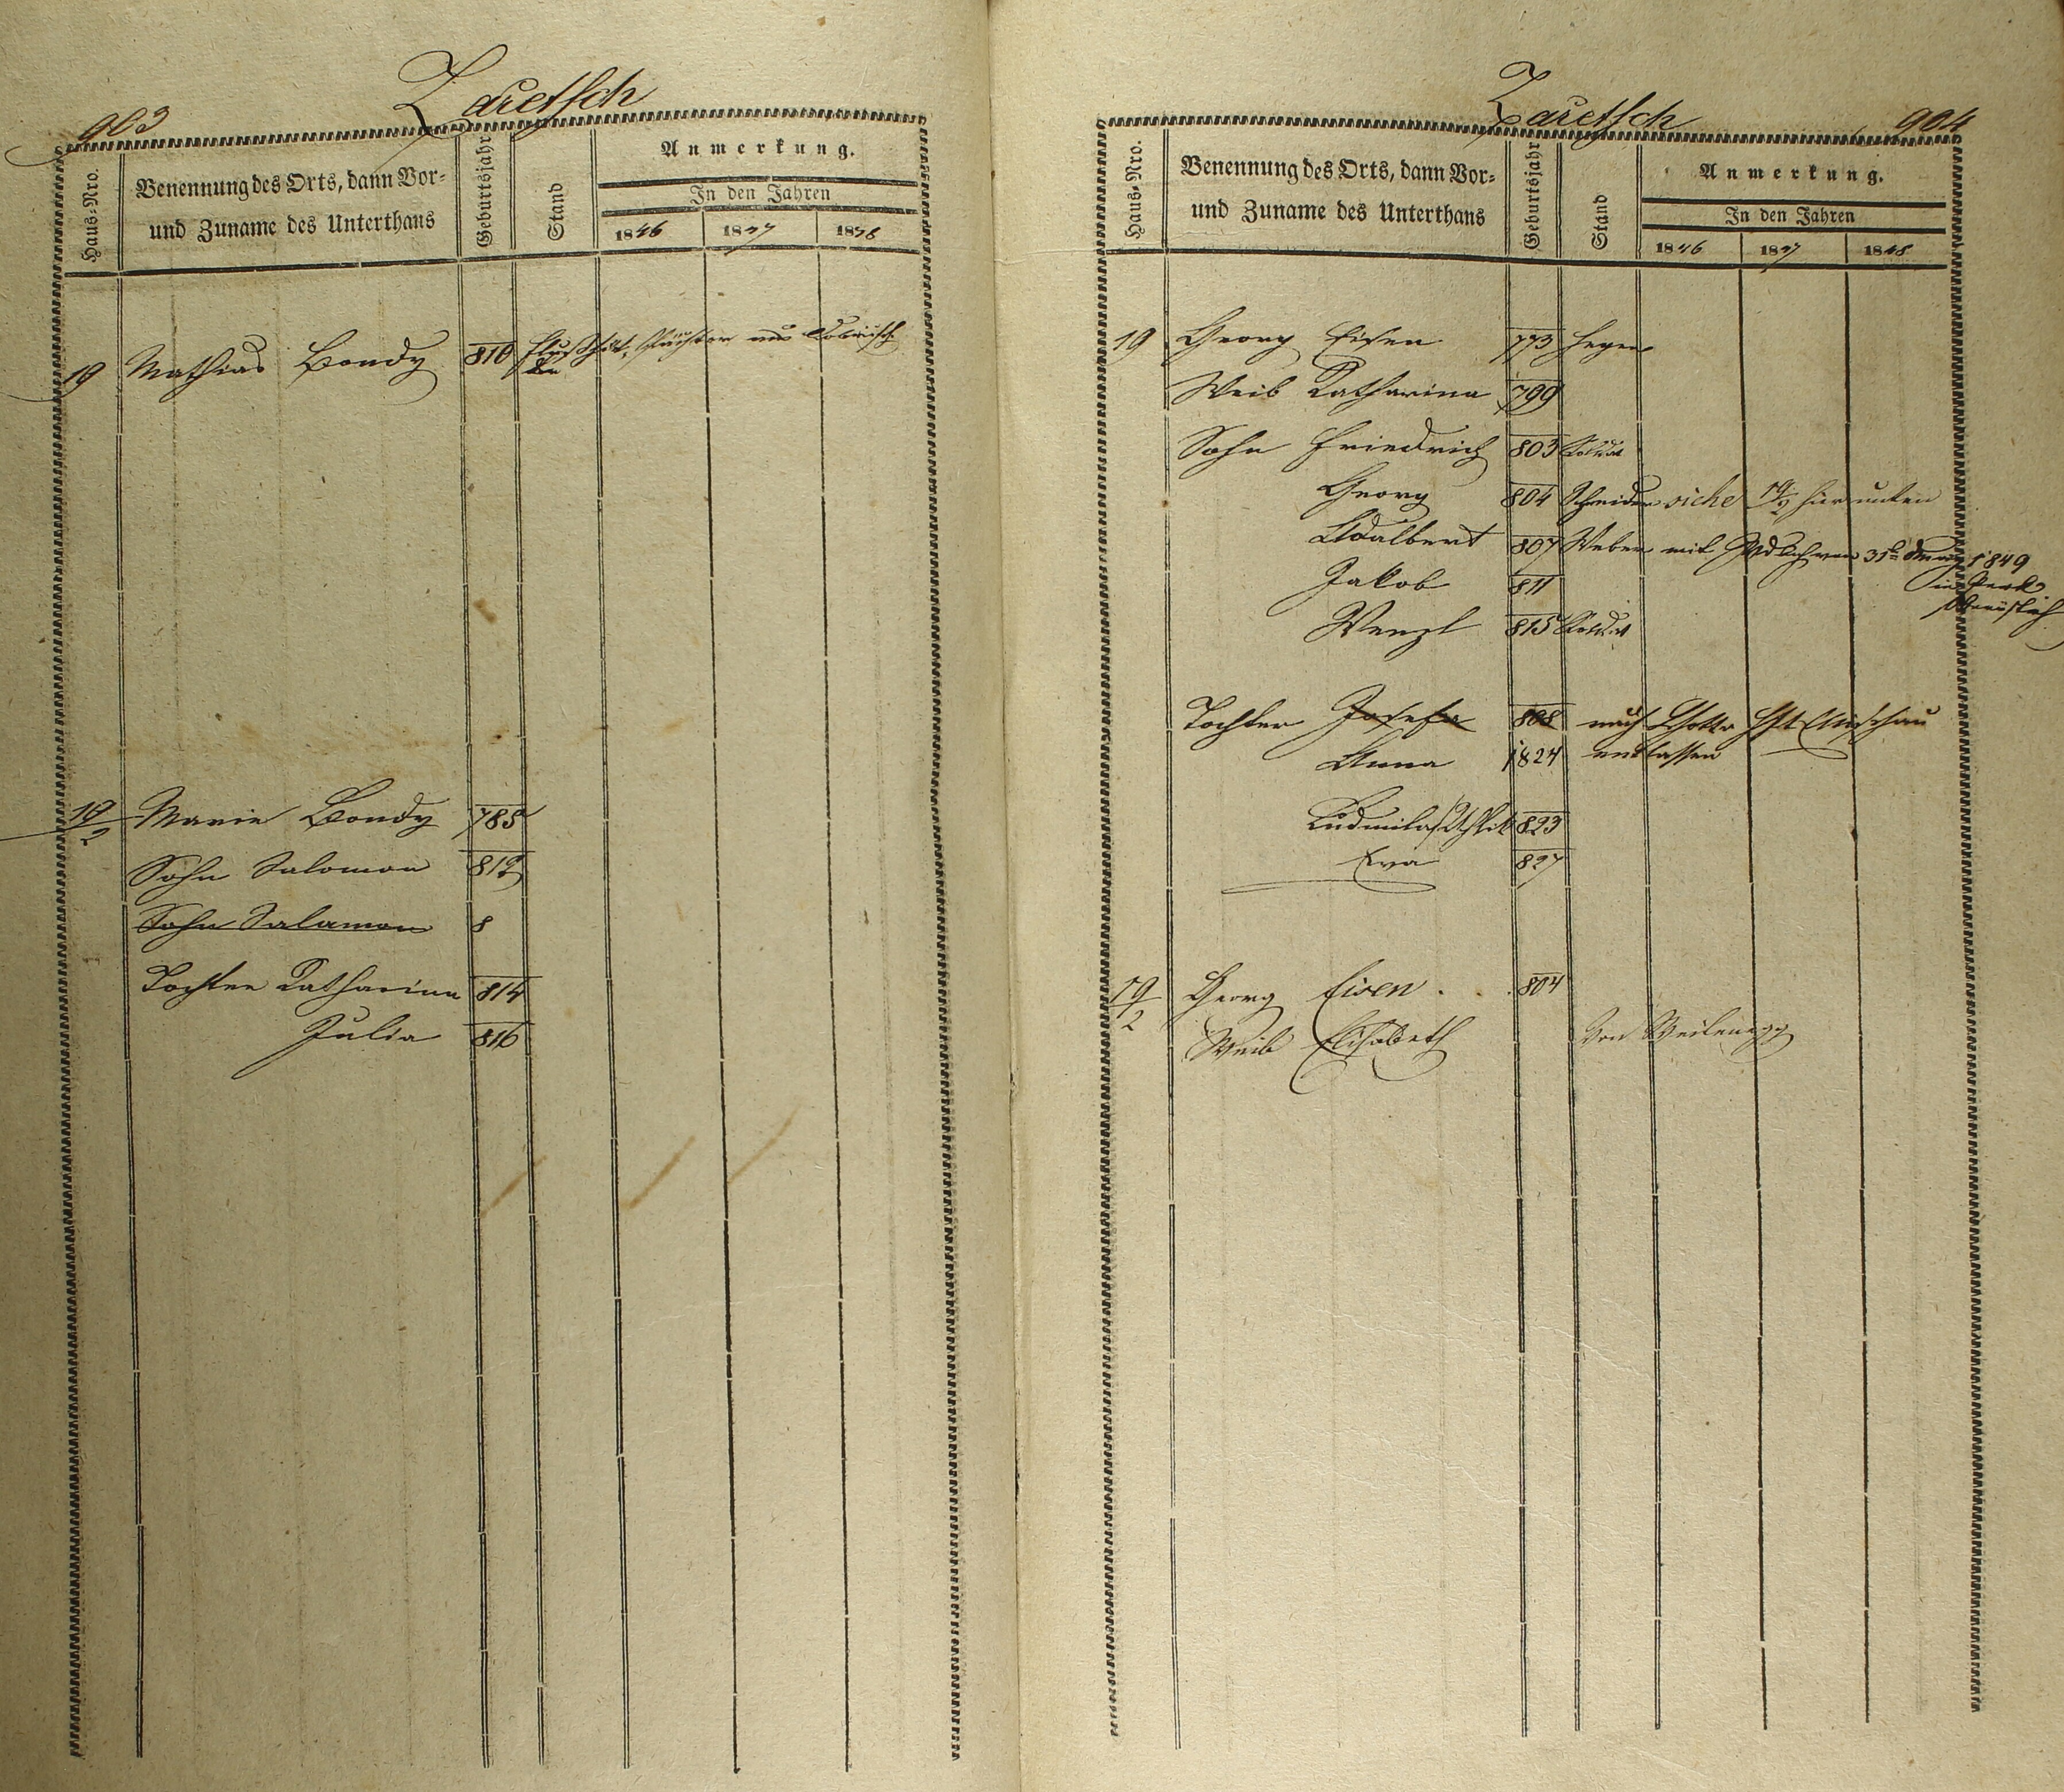 903
Zaretsch
Haus-Nro.
Benennung des Orts, dann Vor-
und Zuname des Unterthans
Geburtsjahr
Stand
Anmerkung.
In den Jahren
1846 1847 1848
19 Mathias Bondy 810
19/2 Marie Bondy 785
Sohn Salomon 812
Sohn Salamon 8
Tochter Katharina 814
Julia 816
Zaretsch
904
Haus-Nro.
Benennung des Orts, dann Vor-
und Zuname des Unterthans
Geburtsjahr
Stand
Anmerkung.
In den Jahren
1846 1847 1848
19 Georg Eisen 773 Heger
Weib Katharina 799
Sohn Friedrich 803 Soldat
Georg 804 Schneider siehe 19/2 hier unten
Adalbert 807 Weber mit 31 1849
Jakob 811
Wenzl 815 Soldat
Tochter Josefa 808 nach
Anna 1824 entlassen
Ludmila 823
Eva 827
19/2 Georg Eisen 804
Weib Elisabeth von